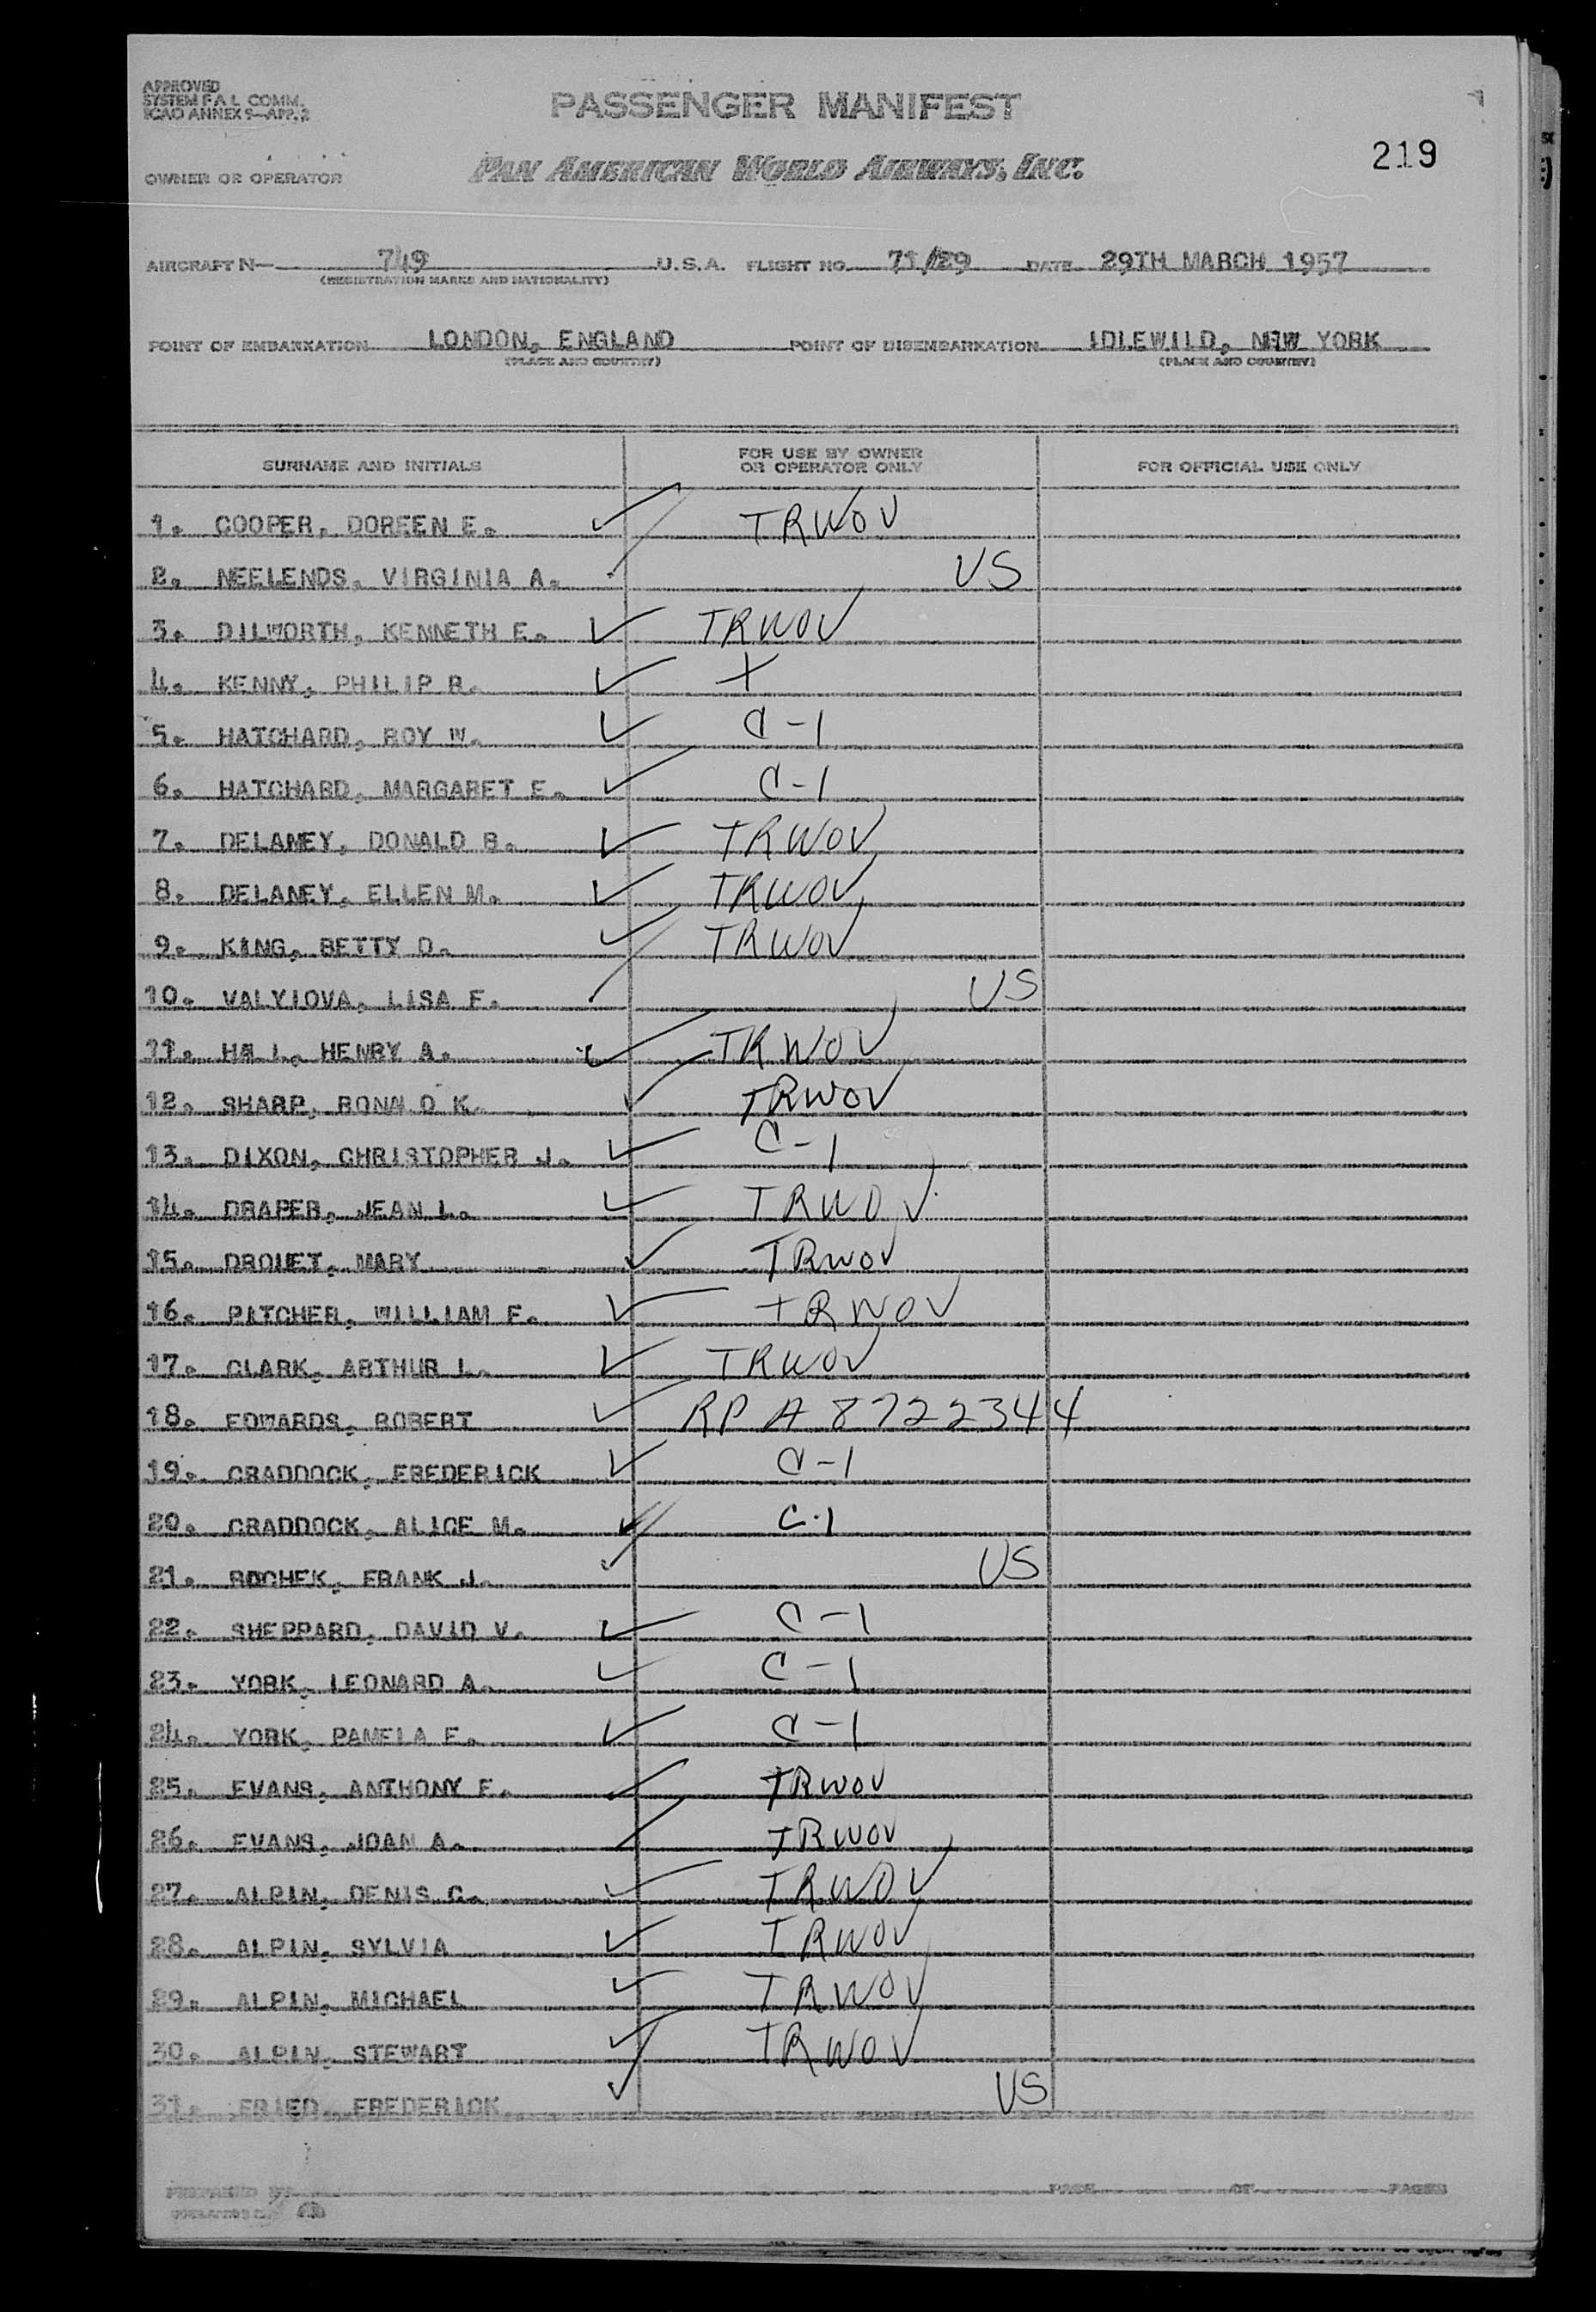 APPROVED
SYSTEM F A L COMM.
ICAO ANNEX 9—APP. 2
PASSENGER MANIFEST
219
OWNER OR OPERATOR PAN AMERICAN WORLD AIRWAYS, INC.
AIRCRAFT N— 749 U.S.A. FLIGHT NO. 71/29 DATE 29TH MARCH 1957
(REGISTRATION MARKS AND NATIONALITY)
POINT OF EMBARKATION LONDON, ENGLAND POINT OF DISEMBARKATION IDLEWILD, NEW YORK
(PLACE AND COUNTRY) (PLACE AND COUNTRY)
SURNAME AND INITIALS FOR USE BY OWNER OR OPERATOR ONLY FOR OFFICIAL USE ONLY
1. COOPER, DOREEN E. TRWOV
2. NEELENDS, VIRGINIA A. US
3. DILWORTH, KENNETH E. TRWOV
4. KENNY, PHILIP R. X
5. HATCHARD, ROY W. C-1
6. HATCHARD, MARGARET E. C-1
7. DELANEY, DONALD B. TRWOV
8. DELANEY, ELLEN M. TRWOV
9. KING, BETTY D. TRWOV
10. VALYIOVA, LISA F. US
11. HENRY A. TRWOV
12. SHARP, K. TRWOV
13. DIXON, CHRISTOPHER J. C-1
14. DRAPER, JEAN L. TRWOV
15. DROUET, MARY TRWOV
16. PATCHER, WILLIAM F. TRWOV
17. CLARK, ARTHUR L. TRWOV
18. EDWARDS, ROBERT RP A 8722344
19. CRADDOCK, FREDERICK C-1
20. CRADDOCK, ALICE M. C-1
21. FRANK J. US
22. SHEPPARD, DAVID V. C-1
23. YORK, LEONARD A. C-1
24. YORK, PAMELA E. C-1
25. EVANS, ANTHONY F. TRWOV
26. EVANS, JOAN A. TRWOV
27. ALPIN, DENIS C. TRWOV
28. ALPIN, SYLVIA TRWOV
29. ALPIN, MICHAEL TRWOV
30. ALPIN, STEWART TRWOV
31. FRIED, FREDERICK US
PREPARED BY PAGE OF PAGES